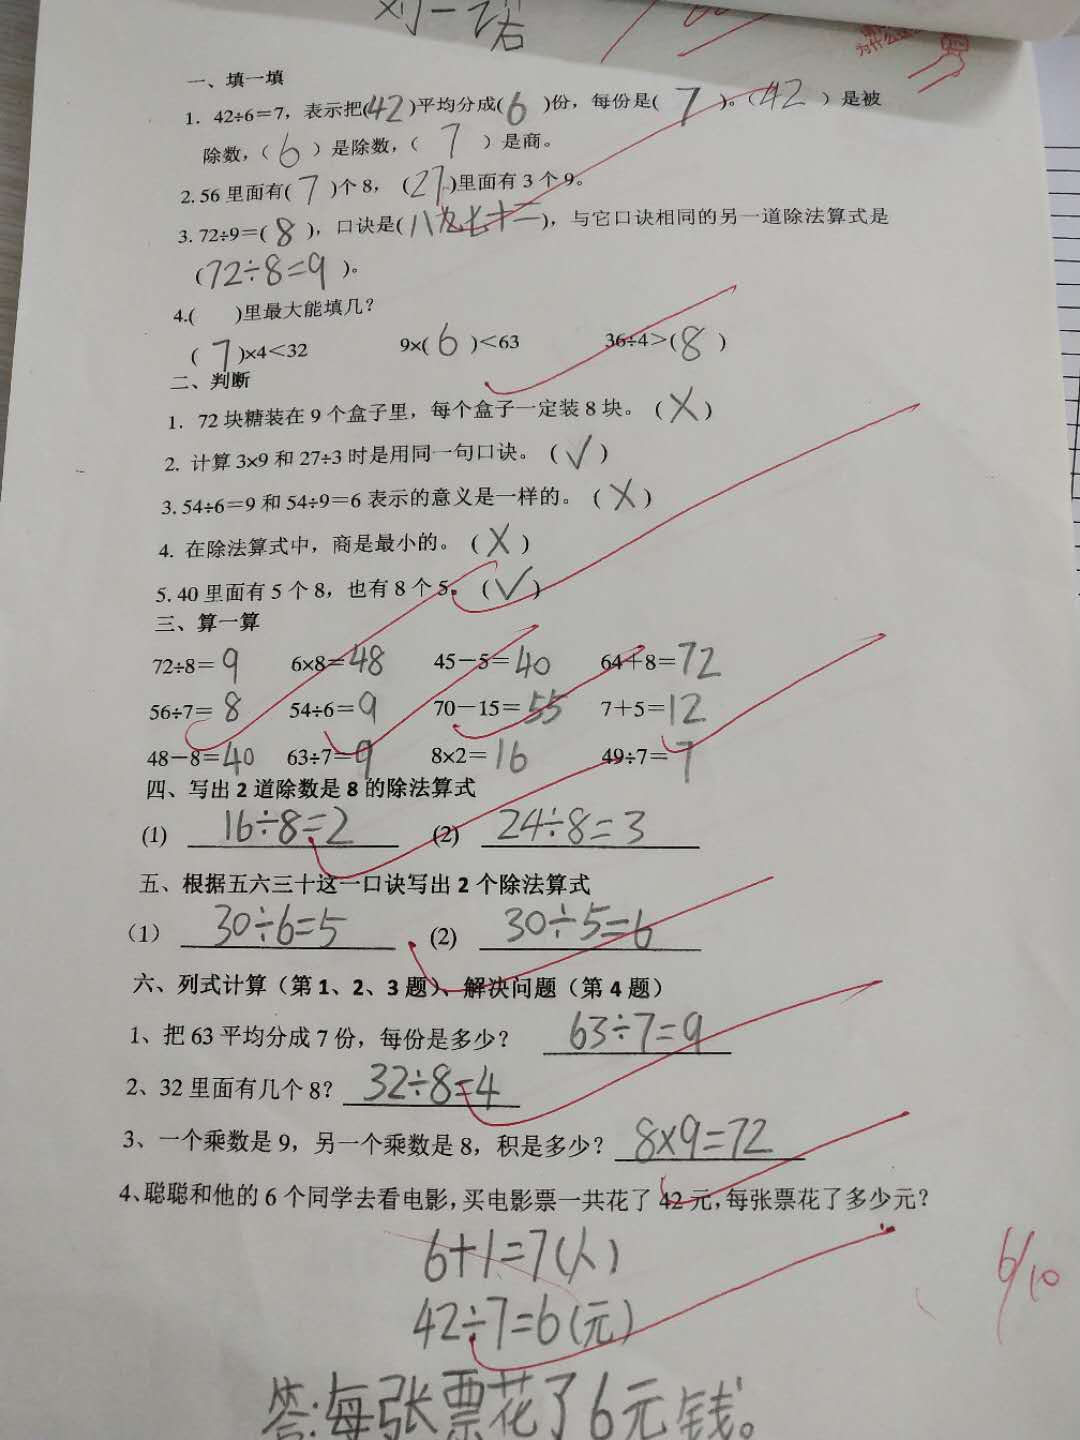 刘一诺
为什么
一、填一填
1. 42÷6=7，表示把(42)平均分成(6)份，每份是(7)。（42）是被
除数，（6）是除数，（7）是商。
2.56里面有(7)个8，（27)里面有3个9。
3.72÷9=(8)，口诀是(八九七十二)，与它口诀相同的另一道除法算式是
(72÷8=9)。
4.( )里最大能填几？
(7)×4＜32 9×(6)＜63 36÷4＞(8)
二、判断
1. 72块糖装在9个盒子里，每个盒子一定装8块。（×）
2. 计算3×9和27÷3时是用同一句口诀。（√）
3.54÷6=9和54÷9=6表示的意义是一样的。（×）
4. 在除法算式中，商是最小的。（×）
5.40里面有5个8，也有8个5。（√）
三、算一算
72÷8=9 6×8=48 45－5=40 64＋8=72
56÷7=8 54÷6=9 70－15=55 7＋5=12
48－8=40 63÷7=9 8×2=16 49÷7=7
四、写出2道除数是8的除法算式
(1) 16÷8=2 (2) 24÷8=3
五、根据五六三十这一口诀写出2个除法算式
（1） 30÷6=5 (2) 30÷5=6
六、列式计算（第1、2、3题）、解决问题（第4题）
1、把63平均分成7份，每份是多少？ 63÷7=9
2、32里面有几个8？ 32÷8=4
3、一个乘数是9，另一个乘数是8，积是多少？ 8×9=72
4、聪聪和他的6个同学去看电影，买电影票一共花了42元，每张票花了多少元？
6+1=7(人)
6/10
42÷7=6(元)
答:每张票花了6元钱。